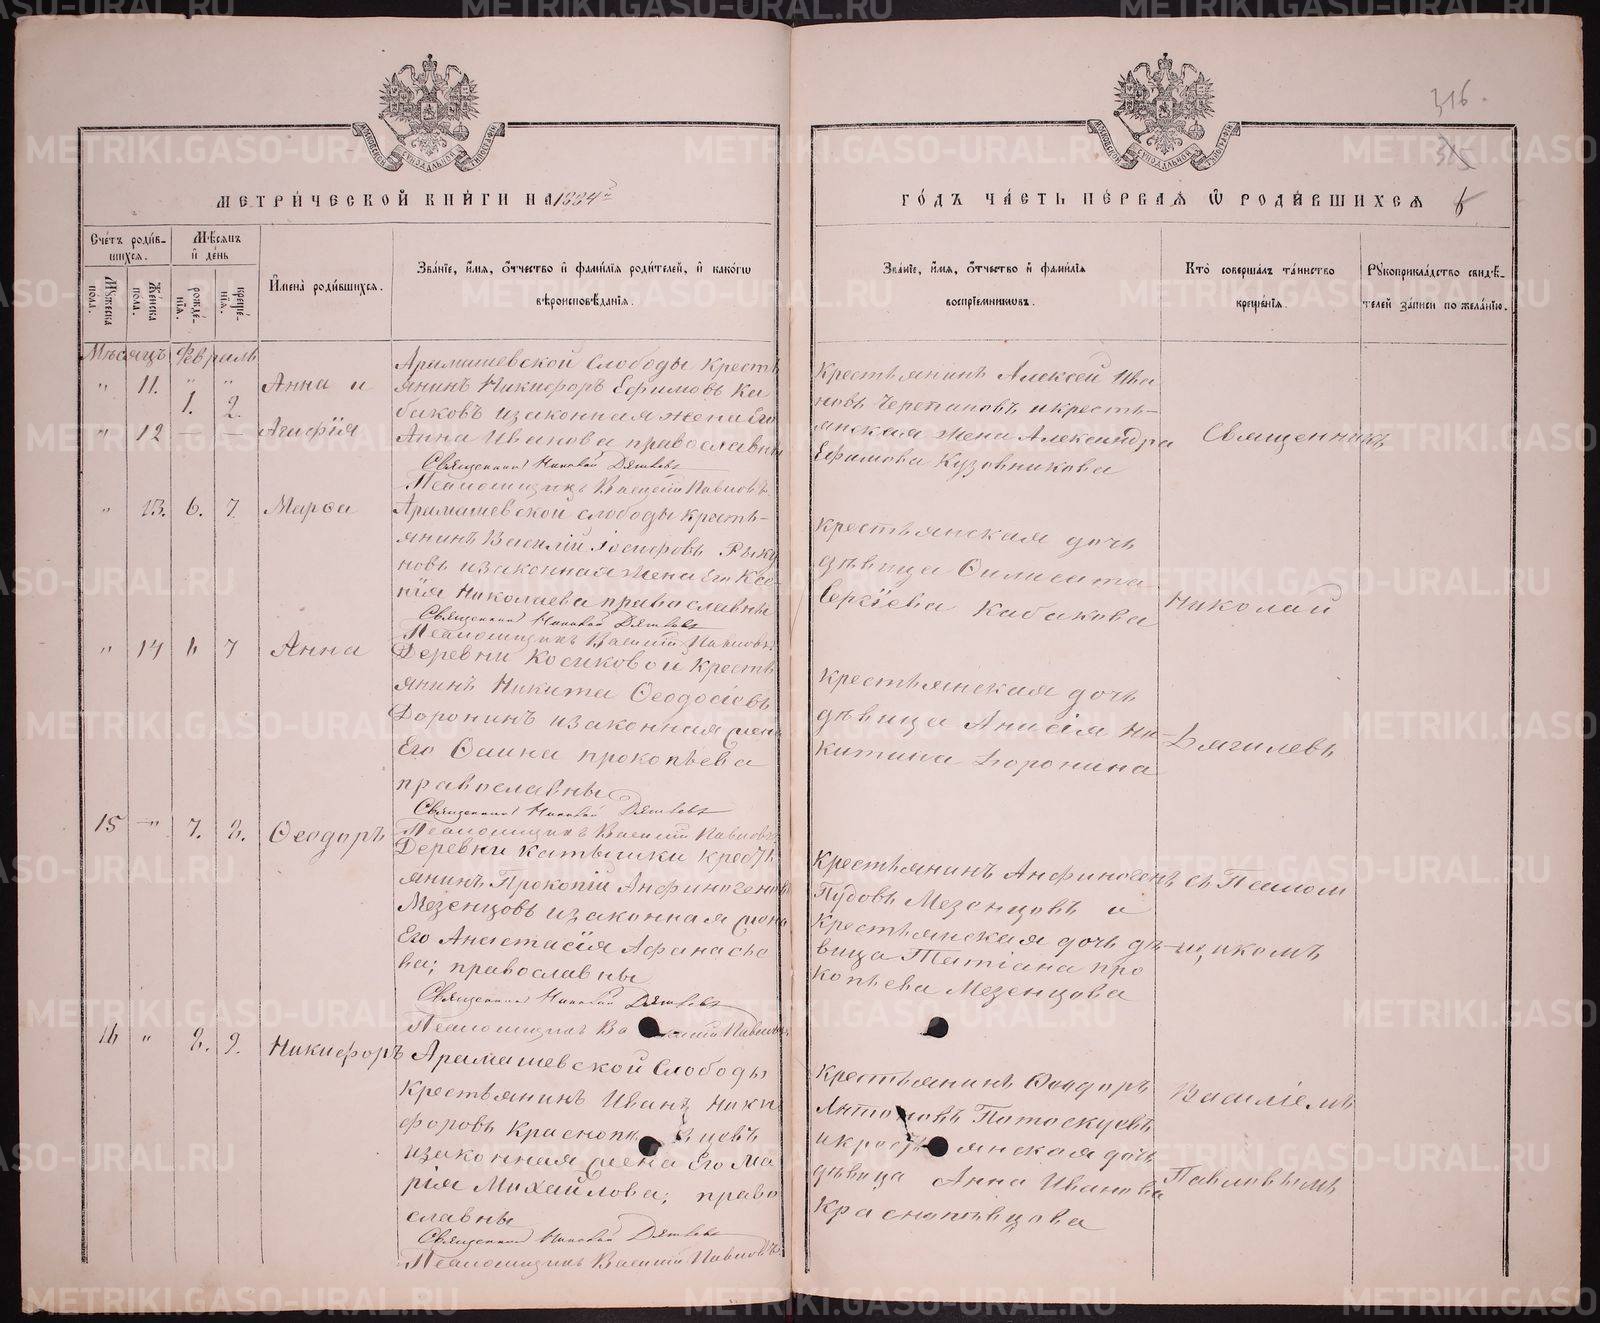 316.
МОСКОВСКОЙ СѴНОДАЛЬНОЙ ТИПОГРАФІИ
МОСКОВСКОЙ СѴНОДАЛЬНОЙ ТИПОГРАФІИ
МЕТРИ́ЧЕСКОЙ КНИ́ГИ НА 1884й
ГО́ДЪ ЧА́СТЬ ПЕ́РВАЯ Ѿ РОДИ́ВШИХСЯ
Сче́тъ роди́в-
шихся.
Мѣ́сяцъ
и де́нь
Мꙋ́жеска
пола.
Же́нска
пола.
рожде́-
нїя.
креще́-
нїя.
И́мена роди́вшихся.
Зва́нїе, и́мя, о́тчество и фами́лїя роди́телей, и како́гѡ
вѣроисповѣ́данїя.
Зва́нїе, и́мя, о́тчество и фами́лїя
воспрїе́мниковъ.
Кто̀ соверша́лъ та́инство
креще́нїя.
Рꙋкоприкла́дство свидѣ́-
телей за́писи по жела́нїю.
Мѣсяцъ Февраль
" 11. 1. 2. Анна и
" 12 — — Агафія
Арамашевской Слободы Кресть
янинъ Никифоръ Ефимовъ Ка
баковъ и законная жена Его
Анна Иванова православны
Священникъ Николай Дягилевъ
Псаломщикъ Василій Павловъ
Крестьянинъ Алексей Ива
новъ Черепановъ и кресть-
янская жена Александра
Ефимова Кузовникова
Священникъ
" 13. 6. 7. Марѳа
Арамашевской слободы кресть-
янинъ Василій Іосифовъ Рыку
новъ и законная жена Его Ксе
нія Николаева православны
Священникъ Николай Дягилевъ
Псаломщикъ Василій Павловъ
крестьянская дочь
дѣвица Ѳилисата
Сергіева Кабакова
Николай
" 14 6 7 Анна
Деревни Косиковой кресть
янинъ Никита Ѳеодосіевъ
Доронинъ и законная жена
Его Ѳаина Прокопьева
православны
Священникъ Николай Дягилевъ
Псаломщикъ Василій Павловъ
крестьянская дочь
дѣвица Анисія Ни-
китина Доронина
Дягилевъ
15 —"— 7. 8. Ѳеодоръ
Деревни Катышки крестъ
янинъ Прокопій Анфиногеновъ
Мезенцовъ и законная жена
Его Анастасія Афанасье
ва; православны
Священникъ Николай Дягилевъ
Псаломщикъ Василій Павловъ
крестьянинъ Анфиногенъ
Пудовъ Мезенцовъ и
крестьянская дочь дѣ-
вица Татіана Про
копьева Мезенцова
съ Псалом
щикомъ
16 " 8. 9. Никифоръ
Арамашевской Слободы
Крестьянинъ Иванъ Ники
форовъ Краснопѣвцовъ
и законная жена Его Ма
рія Михайлова; право
славны
Священникъ Николай Дягилевъ
Псаломщикъ Василій Павловъ
крестьянинъ Ѳеодоръ
Антоновъ Потоскуевъ
и крестьянская дочь
дѣвица Анна Иванова
Краснопѣвцова
Василіемъ
Павловымъ
METRIKI.GASO-URAL.RU